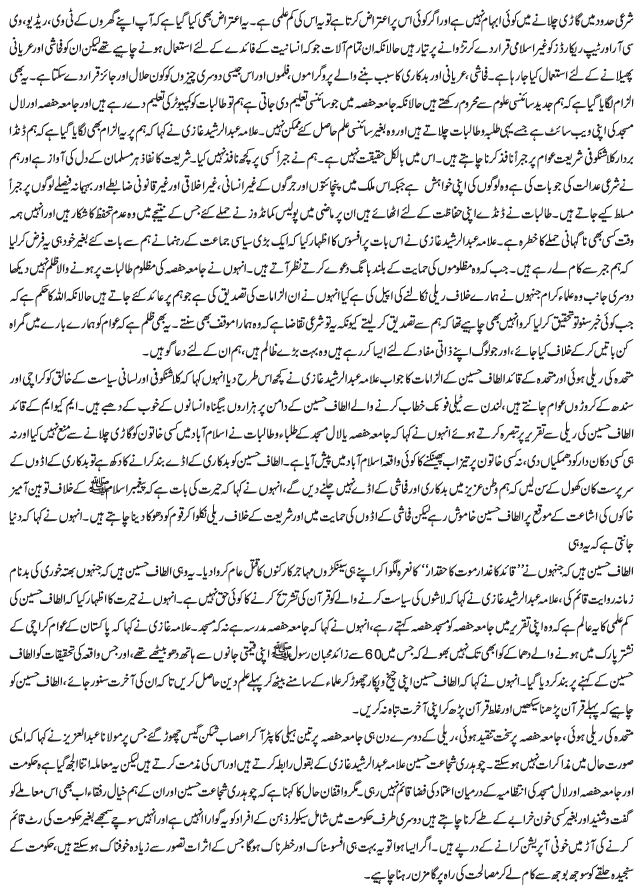 شرعی حدود میں گاڑی چلانے میں کوئی ابہام نہیں ہے اور اگر کوئی اس پر اعتراض کرتا ہے تو یہ اس کی کم علمی ہے۔ یہ اعتراض بھی کیا گیا ہے کہ آپ اپنے گھروں کے ٹی وی، ریڈیو، وی
سی آر اور ٹیپ ریکارڈز کو غیر اسلامی قرار دے کر توڑوانے پر تیار ہیں حالانکہ ان تمام آلات جو کہ انسانیت کے فائدے کے لئے استعمال ہونے چاہیے تھے لیکن ان کو فحاشی اور عریانی
پھیلانے کے لئے استعمال کیا جا رہا ہے۔ فحاشی، عریانی اور بدکاری کا سبب بننے والے پروگراموں، فلموں اور اس جیسی دوسری چیزوں کو کون حلال اور جائز قرار دے سکتا ہے۔ یہ بھی
الزام لگایا گیا ہے کہ ہم جدید سائنسی علوم سے محروم رکھتے ہیں حالانکہ جامعہ حفصہ میں جو سائنسی تعلیم دی جاتی ہے ہم تو طالبات کو کمپیوٹر کی تعلیم دے رہے ہیں اور جامعہ حفصہ اور لال
مسجد کی اپنی ویب سائٹ ہے جسے یہی طلبہ و طالبات چلاتے ہیں اور وہ بغیر سائنسی علم حاصل کئے ممکن نہیں۔ علامہ عبدالرشید غازی نے کہا کہ ہم پر یہ الزام بھی لگایا گیا ہے کہ ہم ڈنڈا
بردار کلاشنکوفی شریعت عوام پر جبراً نافذ کرنا چاہتے ہیں۔ اس میں بالکل حقیقت نہیں ہے۔ ہم نے جبراً کسی پر کچھ نافذ نہیں کیا۔ شریعت کا نفاذ ہر مسلمان کے دل کی آواز ہے اور ہم
نے شرعی عدالت کی جو بات کی ہے وہ لوگوں کی اپنی خواہش ہے جبکہ اس ملک میں پنچائتوں اور جرگوں کے غیر انسانی، غیر اخلاقی اور غیر قانونی ضابطے اور بہیمانہ فیصلے لوگوں پر جبراً
مسلط کیے جاتے ہیں۔ طالبات نے ڈنڈے اپنی حفاظت کے لئے اٹھائے ہیں ان پر ماضی میں پولیس کمانڈوز نے حملے کئے جس کے نتیجے میں وہ عدم تحفظ کا شکار ہیں اور انہیں ہمہ
وقت کسی بھی ناگہانی حملے کا خطرہ ہے۔ علامہ عبدالرشید غازی نے اس بات پر افسوس کا اظہار کیا کہ ایک بڑی سیاسی جماعت کے رہنما نے ہم سے بات کئے بغیر خود ہی یہ فرض کر لیا
کہ ہم جبر سے کام لے رہے ہیں۔ جب کہ وہ مظلوموں کی حمایت کے بلند بانگ دعوے کرتے نظر آتے ہیں۔ انہوں نے جامعہ حفصہ کی مظلوم طالبات پر ہونے والا ظلم نہیں دیکھا
دوسری جانب وہ علماء کرام جنہوں نے ہمارے خلاف ریلی نکالنے کی اپیل کی ہے کیا انہوں نے ان الزامات کی تصدیق کی ہے جو ہم پر عائد کئے جاتے ہیں حالانکہ اللہ کا حکم ہے کہ
جب کوئی خبر سنو تو تحقیق کر لیا کرو انہیں بھی چاہیے تھا کہ ہم سے تصدیق کر لیتے کیونکہ یہ تو شرعی تقاضا ہے کہ وہ ہمارا موقف بھی سنتے۔ یہ بھی ظلم ہے کہ عوام کو ہمارے بارے میں گمراہ
کن باتیں کر کے خلاف کیا جائے، اور جو لوگ اپنے ذاتی مفاد کے لئے ایسا کر رہے ہیں وہ بہت بڑے ظالم ہیں، ہم ان کے لئے دعا گو ہیں۔
متحدہ کی ریلی ہوئی اور متحدہ کے قائد الطاف حسین کے الزامات کا جواب علامہ عبدالرشید غازی نے کچھ اس طرح دیا انہوں کہا کہ کلاشنکوفی اور لسانی سیاست کے خالق کو کراچی اور
سندھ کے کروڑوں عوام جانتے ہیں، لندن سے ٹیلی فونک خطاب کرنے والے الطاف حسین کے دامن پر ہزاروں بیگناہ انسانوں کے خون کے دھبے ہیں۔ ایم کیو ایم کے قائد
الطاف حسین کی ریلی سے تقریر پر تبصرہ کرتے ہوئے انہوں نے کہا کہ جامعہ حفصہ یا لال مسجد کے طلباء و طالبات نے اسلام آباد میں کسی خاتون کو گاڑی چلانے سے منع نہیں کیا اور نہ
ہی کسی دکان دار کو دھمکیاں دی، نہ کسی خاتون پر تیزاب پھینکنے کا کوئی واقعہ اسلام آباد میں پیش آیا ہے۔ الطاف حسین کو بدکاری کے اڈے بند کرانے کا دکھ ہے تو بدکاری کے اڈوں کے
سرپرست کان کھول کے سن لیں کہ ہم وطن عزیز میں بدکاری اور فحاشی کے اڈے نہیں چلنے دیں گے، انہوں نے کہا کہ حیرت کی بات ہے کہ پیغمبر اسلام ﷺ کے خلاف توہین آمیز
خاکوں کی اشاعت کے موقع پر الطاف حسین خاموش رہے لیکن فحاشی کے اڈوں کی حمایت میں اور شریعت کے خلاف ریلی نکلوا کر قوم کو دھوکا دینا چاہتے ہیں۔ انہوں نے کہا کہ دنیا
جانتی ہے کہ یہ وہی
الطاف حسین ہیں کہ جنہوں نے ’’قائد کا غدار موت کا حقدار‘‘ کا نعرہ لگوا کر اپنے ہی سینکڑوں مہاجر کارکنوں کا قتل عام کروا دیا۔ یہ وہی الطاف حسین ہیں کہ جنہوں بھتہ خوری کی بدنام
زمانہ روایت قائم کی، علامہ عبدالرشید غازی نے کہا کہ لاشوں کی سیاست کرنے والے کو قرآن کی تشریح کرنے کا کوئی حق نہیں ہے۔ انہوں نے حیرت کا اظہار کیا کہ الطاف حسین کی
کم علمی کا یہ عالم ہے کہ وہ اپنی تقریر میں جامعہ حفصہ کو مسجد حفصہ کہتے رہے، انہوں نے کہا کہ جامعہ حفصہ مدرسہ ہے نہ کہ مسجد۔ علامہ غازی نے کہا کہ پاکستان کے عوام کراچی کے
نشتر پارک میں ہونے والے دھماکے کو ابھی تک نہیں بھولے کہ جس میں 60 سے زائد محبان رسول ﷺ اپنی قیمتی جانوں سے ہاتھ دھو بیٹھے تھے، اور جس واقعہ کی تحقیقات کو الطاف
حسین کے کہنے پر بند کر دیا گیا۔ انہوں نے کہا کہ الطاف حسین اپنی چیخ و پکار چھوڑ کر علماء کے سامنے بیٹھ کر پہلے علم دین حاصل کریں تاکہ ان کی آخرت سنور جائے، الطاف حسین کو
چاہیے کہ پہلے قرآن پڑھنا سیکھیں اور غلط قرآن پڑھ کر اپنی آخرت تباہ نہ کریں۔
متحدہ کی ریلی ہوئی، جامعہ حفصہ پر سخت تنقید ہوئی، ریلی کے دوسرے دن ہی جامعہ حفصہ پر تین ہیلی کاپٹر آ کر اعصاب شکن گیس چھوڑ گئے جس پر مولانا عبدالعزیز نے کہا کہ ایسی
صورت حال میں مذاکرات نہیں ہو سکتے۔ چوہدری شجاعت حسین علامہ عبدالرشید غازی کے بقول رابطہ کرتے ہیں اور اس کی مذمت کرتے ہیں لیکن یہ معاملہ اتنا الجھ گیا ہے کہ حکومت
اور جامعہ حفصہ اور لال مسجد کی انتظامیہ کے درمیان اعتماد کی فضا قائم نہیں رہی۔ مگر واقفان حال کا کہنا ہے کہ چوہدری شجاعت حسین اور ان کے ہم خیال رفقاء اب بھی اس معاملے کو
گفت و شنید اور بغیر کسی خون خرابے کے طے کرنا چاہتے ہیں دوسری طرف حکومت میں شامل سیکولر ذہن کے افراد کو یہ گوارا نہیں ہے اور انہیں سوچے سمجھے بغیر حکومت کی رٹ قائم
کرنے کی آڑ میں خونی آپریشن کرانے کے درپے ہیں۔ اگر ایسا ہوا تو یہ بہت ہی افسوسناک اور خطرناک ہوگا جس کے اثرات تصور سے زیادہ خوفناک ہو سکتے ہیں، حکومت کے
سنجیدہ حلقے کو سوجھ بوجھ سے کام لے کر مصالحت کی راہ پر گامزن رہنا چاہیے۔